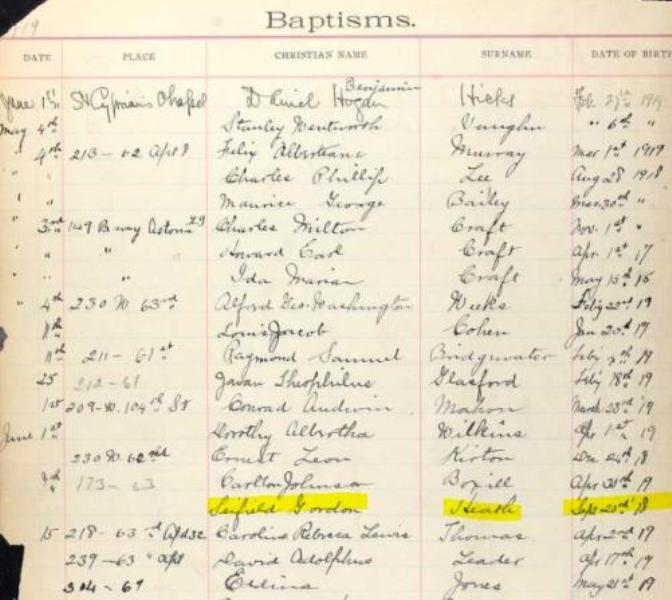 119
Baptisms.
DATE PLACE CHRISTIAN NAME SURNAME DATE OF BIRTH
June 1st St Cyprian's Chapel Daniel Hogan Benjamin Hicks Feb. 27th 1919
May 4th Stanley Wentworth Vaughn " 6th "
" 4th 213-62 Apt 8 Felix Murray Mar 1st 1919
" " Charles Phillip Lee Aug 28 1918
" " Maurice George Bailey Mar 30th "
" 3rd 149 B'way Astoria L.I. Charles Milton Craft Nov. 1st "
" " " Howard Earl Craft Apr 1st 17
" " " Ida Marian Craft May 15th 15
" 4th 230 W. 63rd Alford Geo. Washington Weeks 22nd 19
11th Louis Jacob Cohen Jan 19
11th 211- 61st Raymond Samuel Bridgwater Feby 19
25 212-61 Javan Theophilus Glasford Feby 18th 19
1st 209-W. 104th St Conrad Mahon March 23rd '19
June 1st Dorothy Albertha Wilkins Apr 1st 19
230 W. 62nd Ernest Leon Kirton 24th 18
173-63 Carlton Johnson Apr 30th 19
Seifield Gordon Heath Sept 23rd 18
15 218- 63rd Apt 32 Caroline Rebecca Lewis Thomas Apr 2nd 19
239-63 " Apt David Adolphus Leader Apr 17th 19
304-69 Edina Jones May 21st 19